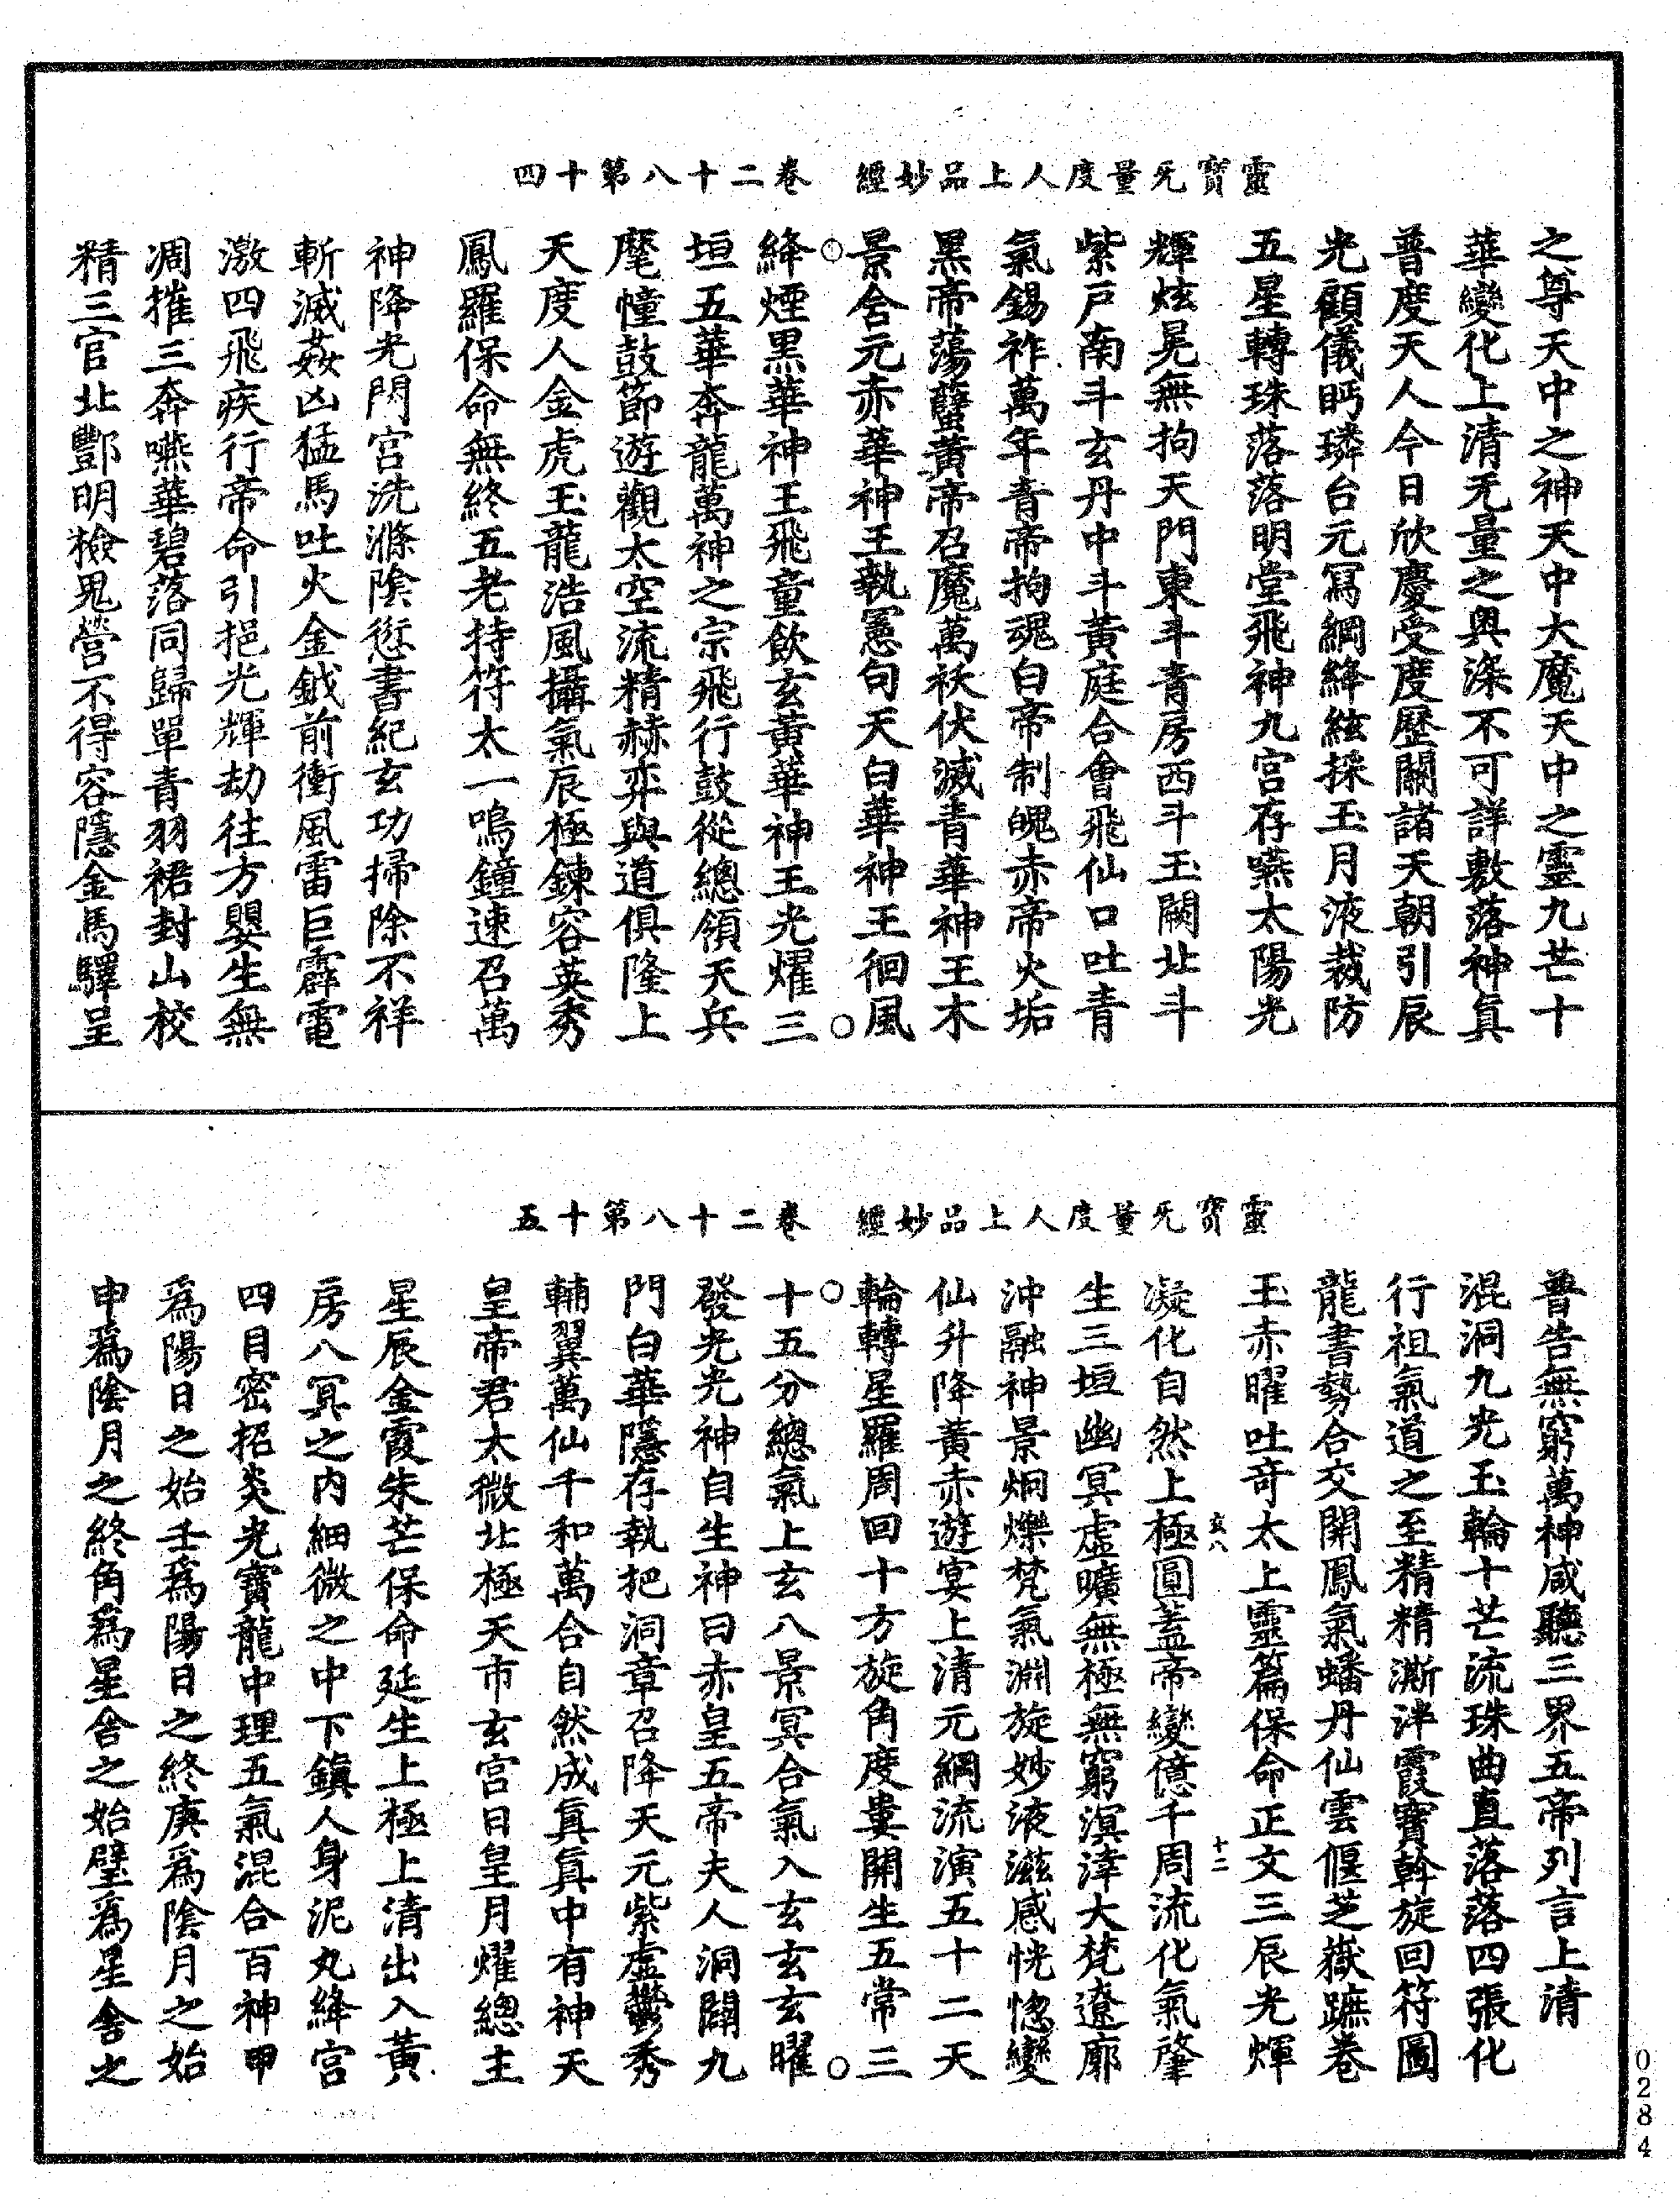 靈寶旡量度人上品妙經　卷二十八第十四
之尊天中之神天中大魔天中之靈九芒十
華變化上清无量之奧深不可詳敷落神眞
普度天人今日欣慶受度歷關諸天朝引辰
光顧儀眄璘台元冩綱絳絃採玉月液裁防
五星轉珠落落明堂飛神九宫存嚥太陽光
輝炫晃無拘天門東斗青房西斗玉闕北斗
紫戸南斗玄丹中斗黃庭合會飛仙口吐青
氣錫祚萬年青帝拘魂白帝制魄赤帝火垢
黑帝蕩蠥黃帝召魔萬祅伏滅青華神王木
景舍元赤華神王執罳句天白華神王徊風
絳煙黒華神王飛童飲玄黃華神王光燿三
垣五華奔龍萬神之宗飛行鼓從總領天兵
麾幢鼓節遊觀太空流精赫弈與道俱隆上
天度人金虎玉龍浩風攝氣辰極鍊容英秀
鳳羅保命無終五老持符太一鳴鐘速召萬
神降光門宮洗滌陰愆書紀玄功掃除不祥
斬滅姦凶猛馬吐火金鉞前衝風雷巨霹電
激四飛疾行帝命引挹光輝劫往方嬰生無
凋摧三奔嚥華碧落同歸單青羽裙封山校
精三官北酆明撿鬼營不得容隱金馬驛呈
靈寶旡量度人上品妙經　卷二十八第十五
普告無窮萬神咸聽三界五帝列言上清
混洞九光玉輪十芒流珠曲直落落四張化
行祖氣道之至精精澌泮霞寶斡旋回符圖
龍書勢合交開鳳氣蟠丹仙雲偃芝嶽蹠卷
玉赤曜吐奇太上靈篇保命正文三辰光煇
玄八　十二
凝化自然上極圓蓋帝變億千周流化氣肇
生三垣幽冥虛曠無極無窮溟涬大梵遼廓
沖融神景炯爍梵氣淵旋妙液滋感恍惚變
仙升降黃赤遊宴上清元綱流演五十二天
輪轉星羅周回十方旋角度婁開生五常三
十五分總氣上玄八景冥合氣入玄玄玄曜
發光光神自生神曰赤皇五帝夫人洞闢九
門白華隱存執把洞章召降天元紫虛鬱秀
輔翼萬仙千和萬合自然成眞眞中有神天
皇帝君太微北極天市玄宫日皇月燿總主
星辰金霞朱芒保命延生上極上清出入黃
房八冥之内細微之中下鎮人身泥丸絳宮
四目密招炎光寶龍中理五氣混合百神甲
爲陽日之始壬爲陽日之終庚爲陰月之始
申爲陰月之終角爲星舍之始壁爲星舍之
0284